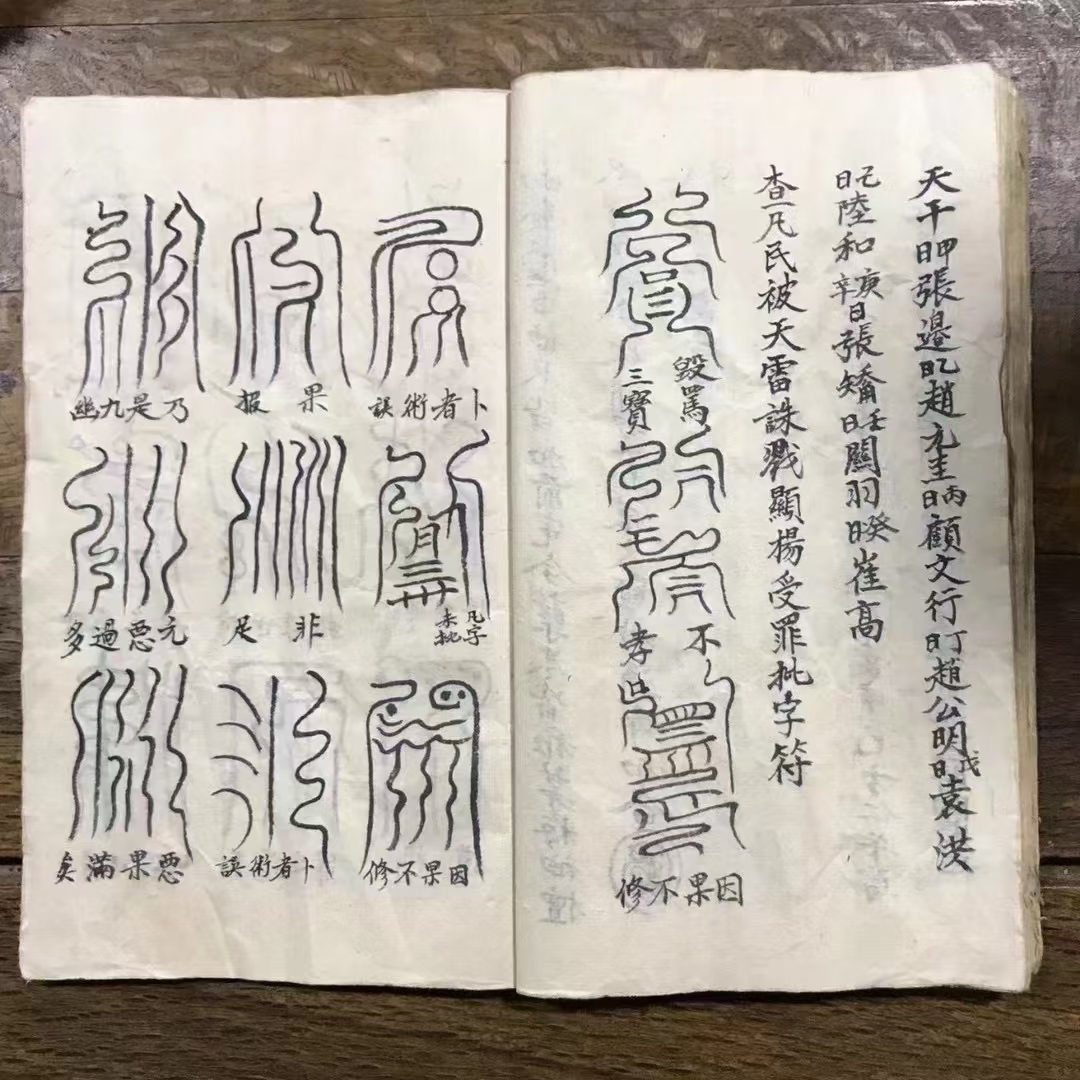 天干甲日張邉乙日趙元圭丙日顧文行丁日趙公明戊日袁洪
己日陸和庚辛日張矯壬日關羽癸日崔高
查一凡民被天雷誅戮顯揚受罪批字符
毀罵
三寶
不孝
因果不修
卜者術誤
凡字
未批
因果不修
果報
非足
卜者術誤
乃是九幽
元惡過多
惡果滿矣